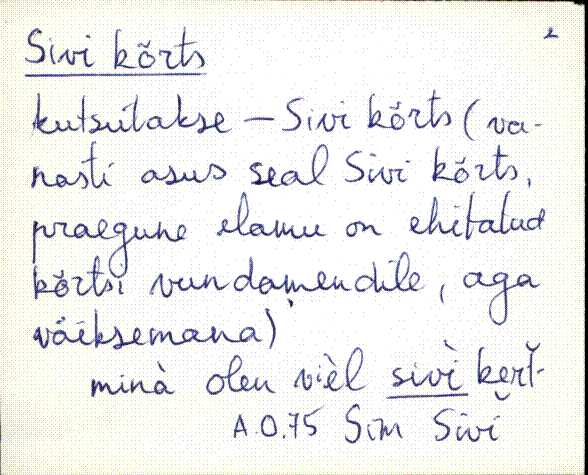 2
Sivi kõrts
kutsutakse – Sivi kõrts (va-
nasti asus seal Sivi kõrts,
praegune elamu on ehitatud
kõrtsi vundamendile, aga
väiksemana)
minà olen vièl sivì
A.O.75 Sim Sivi